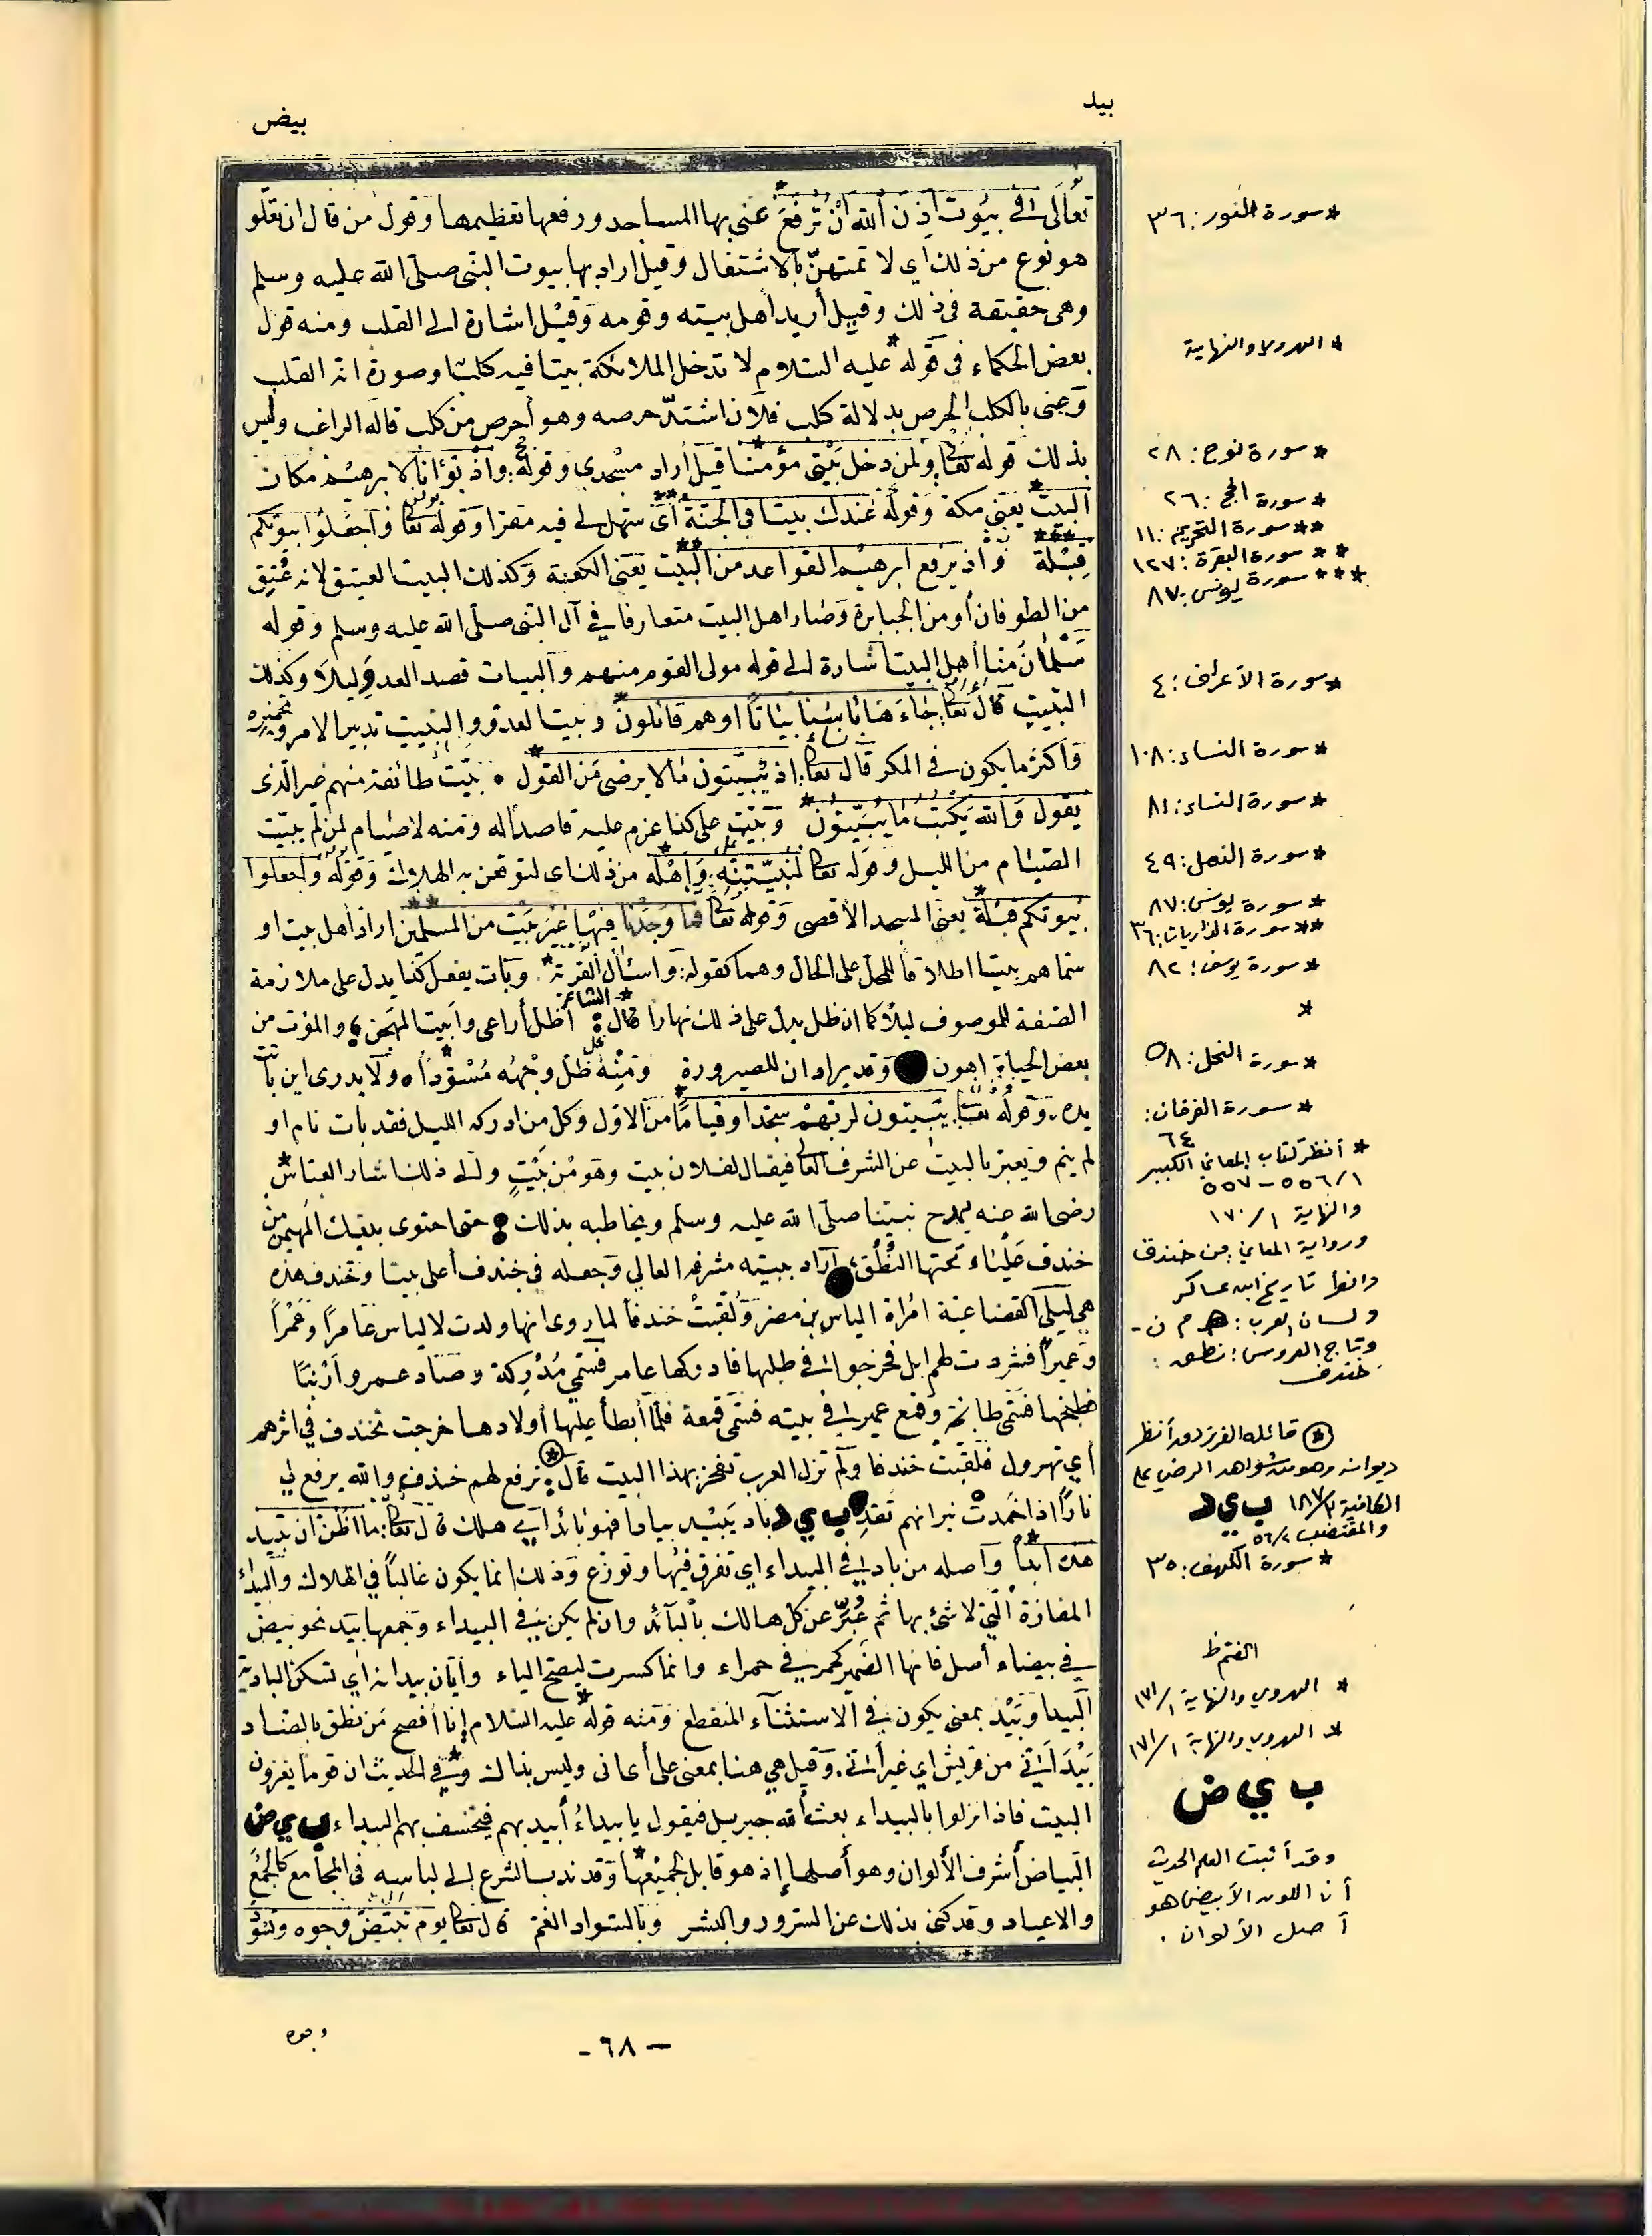 بيد
بيض
تعالى في بيوت أذن الله أن ترفع عنى بها المساجد ورفعها تعظيمها وقول من قال ان تعلو
هو نوع من ذلك اي لا تمتهن بالاشتغال وقيل اراد بها بيوت النبي صلى الله عليه وسلم
وهي حقيقة في ذلك وقيل أريد أهل بيته وقومه وقيل اشارة الى القلب ومنه قول
بعض الحكماء في قوله عليه السلام لا تدخل الملائكة بيتا فيه كلب وصورة انه القلب
وعنى بالكلب الحرص بدلالة كلب فلان اشتد حرصه وهو أحرص من كلب قاله الراغب وليس
بذلك قوله تعالى ولمن دخل بيتي مؤمنا قيل أراد مسجدي وقوله: واذ بوأنا لابرهيم مكان
البيت يعني مكة وقوله عندك بيتا في الجنة أي سهل لي فيه مقرا وقوله تعالى واجعلوا بيوتكم
قبلة واذ يرفع ابرهيم القواعد من البيت يعني الكعبة وكذلك البيت العتيق لانه عتق
من الطوفان أو من الجبابرة وصار اهل البيت متعارفا في آل النبي صلى الله عليه وسلم وقوله
سلمان منا أهل البيت اشارة الى قوله مولى القوم منهم والبيات قصد العدو ليلا وكذلك
التبييت قال تعالى: جاءها بأسنا بياتا او هم قائلون وبيت العدو والتبييت تدبير الامر وتخميره
وأكثر ما يكون في المكر قال تعالى: اذ يبيتون ما لا يرضى من القول • بيت طائفة منهم غير الذي
يقول والله يكتب ما يبيتون وبيت على كذا عزم عليه قاصدا له ومنه لا صيام لمن لم يبيت
الصيام من الليل وقوله تعالى لنبيتنه وأهله من ذلك اي لنوقعن به الهلاك وقوله واجعلوا
بيوتكم قبلة يعني المسجد الأقصى وقوله تعالى فما وجدنا فيها غير بيت من المسلمين اراد أهل بيت او
سماهم بيتا اطلاقا للمحل على الحال وهما كقوله: واسئال القرية وبات يفعل كذا يدل على ملازمة
الصفة للموصوف ليلا كما ان ظل يدل على ذلك نهارا قال الشاعر: اظل أراعى وأبيت المهجن؛ والموت من
بعض الحياة اهون وقد يرادان للصيرورة ومنه ظل وجهه مسودا ه ولا يدرى اين باتت
يده. وقوله تعالى: يبيتون لربهم سجدا وقياما من الاول وكل من ادركه الليل فقد بات نام او
لم ينم ويعبر بالبيت عن الشرف العالي فيقال لفلان بيت وهو من بيت والى ذلك اشار العباس
رضي الله عنه يمدح نبينا صلى الله عليه وسلم ويخاطبه بذلك حتى احتوى بيتك المهيمن من
خندف علياء تحتها النطق؛ أراد ببيته شرفه العالي وجعله في خندف أعلى بيتا وخندف هذه
هي ليلى القضاعية امرأة الياس بن مضر ولقبت خندفا لما روي انها ولدت لالياس عامرا وعمرا
وعميرا فشردت لهم ابل فخرجوا في طلبها فادركها عامر فسمي مدركة وصاد عمرو أرنبا
فطبخها فسمي طابخة وقمع عمير في بيته فسمي قمعة فلما أبطأ عليها أولادها خرجت تخندف في اثرهم
أي تهرول فلقبت خندفا ولم تزل العرب تفخر بهذا البيت قال: ترفع لهم خندف والله يرفع لي
نارا اذا خمدت نيرانهم تقد ب ي د باد يبيد بيادا فهو بائد أي هلك قال تعالى: ما اظن ان تبيد
هذه ابدا وأصله من باد في البيداء اي تفرق فيها وتوزع وذلك انما يكون غالبا في الهلاك والبيداء
المفازة التي لا شئ بها ثم عبر عن كل هالك بالبائد وان لم يكن في البيداء وجمعها بيد نحو بيض
في بيضاء أصل فائها الضم كحمر في حمراء وانما كسرت ليصح الياء وأتان بيدانة أي تسكن البادية
البيدا وبيد بمعنى يكون في الاستثناء المنقطع ومنه قوله عليه السلام إنا أفصح من نطق بالضاد
بيد أني من قريش اي غير أني. وقيل هي هنا بمعنى على أعانى وليس بذاك وفي الحديث ان قوما يغزون
البيت فاذا نزلوا بالبيداء بعث الله جبريل فيقول يا بيداء أبيدبهم فيخسف بهم البيداء ب ي ض
البياض أشرف الألوان وهو أصلها إذ هو قابل لجميعها وقد ندب الشرع الى لباسه في المجامع كالجمع
والاعياد وقد كنى بذلك عن السرور والبشر وبالسواد الغم قال تعالى يوم تبيض وجوه وتسود
وجوه
- ٦٨ -
* سورة النور: ٣٦
* الهروي والنهاية
* سورة نوح: ٢٨
* سورة الحج: ٢٦
** سورة التحريم: ١١
** سورة البقرة: ١٢٧
*** سورة يونس: ٨٧
* سورة الأعراف: ٤
* سورة النساء: ١٠٨
* سورة النساء: ٨١
* سورة النمل: ٤٩
* سورة يونس: ٨٧
** سورة الذاريات: ٣٦
* سورة يوسف: ٨٢
*
* سورة النحل: ٥٨
* سورة الفرقان:
٦٤
* أنظر كتاب المعاني الكبير
١/ ٥٥٦ - ٥٥٧
والنهاية ١/ ١٧٠
ورواية المعاني: من خندق
وانظر تاريخ ابن عساكر
ولسان العرب: هـ م ن -
وتاج العروس: نطق:
خندف
* قائله الفرزدق أنظر
ديوانه وهو من شواهد الرضي على
الكافية ١٨٧/٢ ب ي د
والمقتضب ٥٦/٢
* سورة الكهف: ٣٥
* الهروي والنهاية ١/ ١٧١
* الهروي والنهاية ١/ ١٧١
ب ي ض
وقد أثبت العلم الحديث
أن اللون الأبيض هو
أصل الألوان .